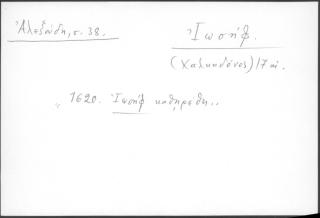 Ἀλεξούδη, σ. 38.
Ἰωσήφ.
(Χαλκηδόνος) 17 αἰ.
„ 1620. Ἰωσήφ καθῃρέθη..